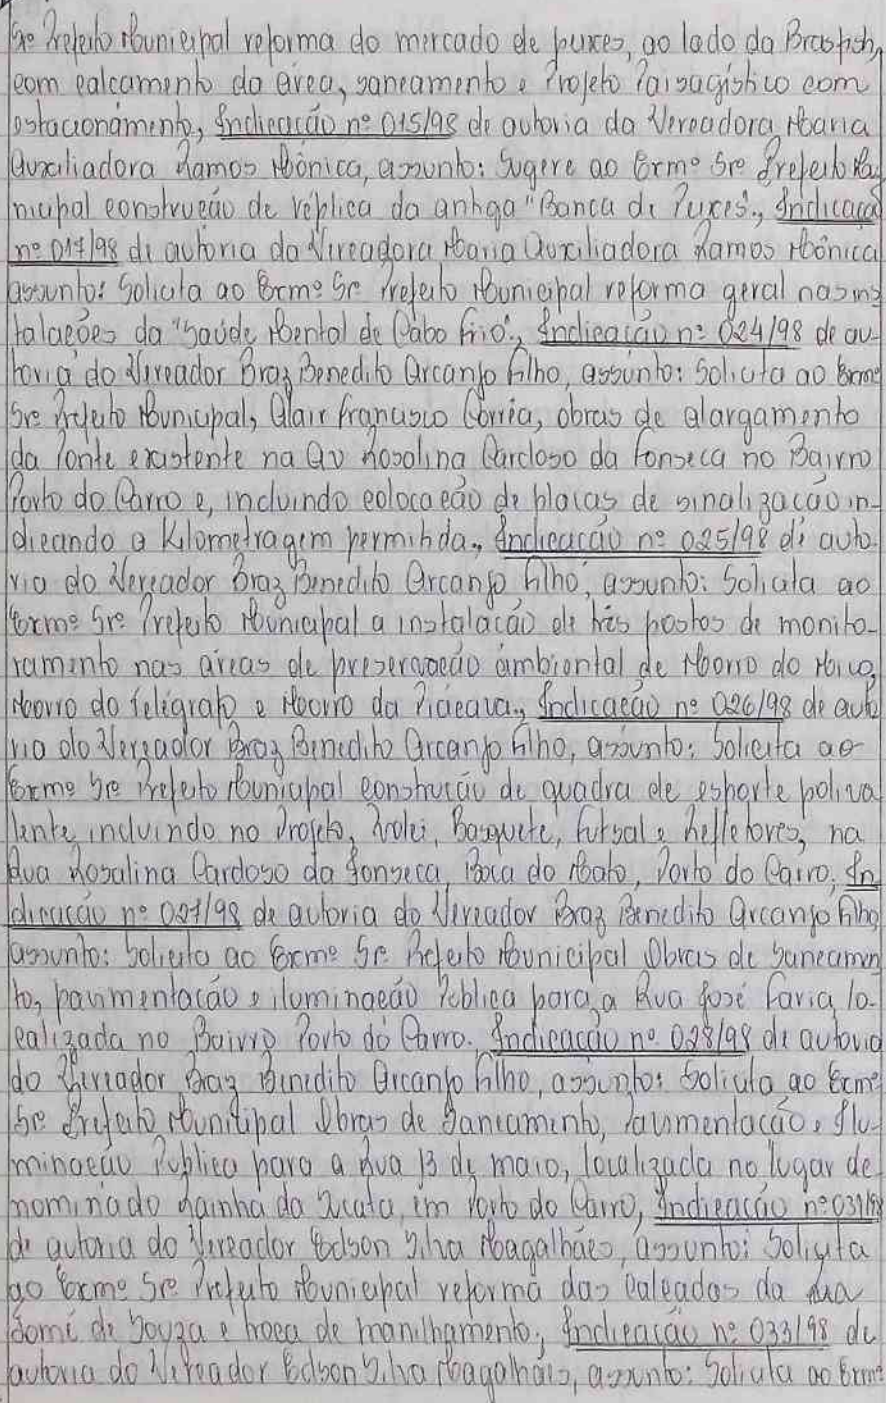 Sro Prefeito Municipal reforma do mercado de peixes, ao lado da Brasfish,
com calçamento da área, saneamento e Projeto Paisagístico com
estacionamento, Indicação nº 015/98 de autoria da Vereadora Maria
Auxiliadora Ramos Mônica, assunto: Sugere ao Exmº Srº Prefeito Mu-
nicipal construção de réplica da antiga "Banca de Peixes"., Indicação
nº 017/98 de autoria da Vereadora Maria Auxiliadora Ramos Mônica
assunto: Solicita ao Exmº Sr. Prefeito Municipal reforma geral nas ins
talações da "Saúde Mental de Cabo Frio"., Indicação nº 024/98 de au-
toria do Vereador Braz Benedito Arcanjo Filho, assunto: Solicita ao Exmº
Srº Prefeito Municipal, Alair Francisco Corrêa, obras de alargamento
da Ponte existente na Av Rosolina Cardoso da Fonseca no Bairro
Porto do Carro e, incluindo colocação de placas de sinalização in-
dicando a Kilometragem permitida., Indicação nº 025/98 de auto-
ria do Vereador Braz Benedito Arcanjo Filho, assunto: Solicita ao
Exmº Srº Prefeito Municipal a instalação de três postos de monito-
ramento nas áreas de preservação ambiental de Morro do Mico,
Morro do Telégrafo e Morro da Piaçava., Indicação nº 026/98 de auto
ria do Vereador Braz Benedito Arcanjo Filho, assunto: Solicita ao
Exmº Srº Prefeito Municipal construção de quadra de esporte poliva
lente, incluindo no Projeto, Volei, Basquete, Futsal e Refletores, na
Rua Rosalina Cardoso da Fonseca, Boca do Mato, Porto do Carro; In
dicação nº 027/98 de autoria do Vereador Braz Benedito Arcanjo Filho
assunto: Solicita ao Exmº Sr. Prefeito Municipal Obras de Saneamen
to, pavimentação e iluminação Pública para a Rua José Faria, lo-
calizada no Bairro Porto do Carro. Indicação nº 028/98 de autoria
do Vereador Braz Benedito Arcanjo Filho, assunto: Solicita ao Exmº
Srº Prefeito Municipal Obras de Saneamento, Pavimentação e Ilu-
minação Pública para a Rua 13 de maio, localizada no lugar de
nominado Rainha da Sucata, em Porto do Carro, Indicação nº 031/98
de autoria do Vereador Edson Silva Magalhães, assunto: Solicita
ao Exmº Srº Prefeito Municipal reforma das Calçadas da Rua
Tomé de Souza e troca de manilhamento., Indicação nº 033/98 de
autoria do Vereador Edson Silva Magalhães, assunto: Solicita ao Exmº